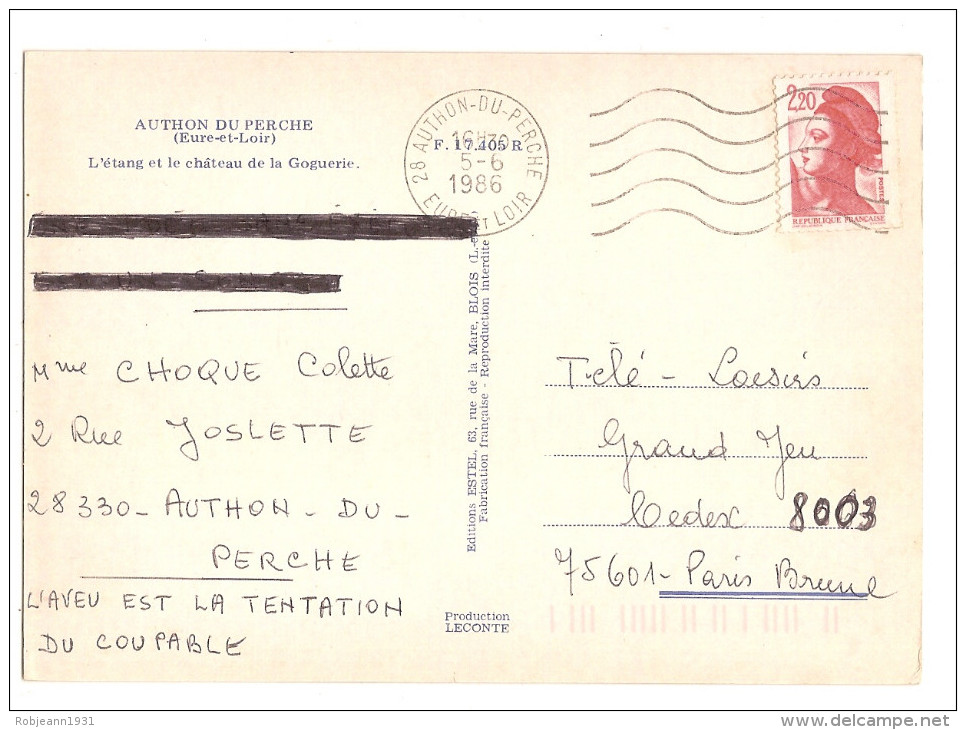 AUTHON DU PERCHE
(Eure-et-Loir)
L'étang et le château de la Goguerie.
F. 17.405 R
28 AUTHON-DU-PERCHE
16H30
5-6
1986
EURE ET LOIR
2,20
POSTES
REPUBLIQUE FRANÇAISE
Mme CHOQUE Colette
2 Rue JOSLETTE
28330 - AUTHON - DU -
PERCHE
L'AVEU EST LA TENTATION
DU COUPABLE
Editions ESTEL, 63, rue de la Mare, BLOIS
Fabrication française - Reproduction interdite
Production
LECONTE
Télé - Loisirs
Grand Jeu
Cedex 8003
75601 - Paris Brune
Robjeann1931
www.delcampe.net